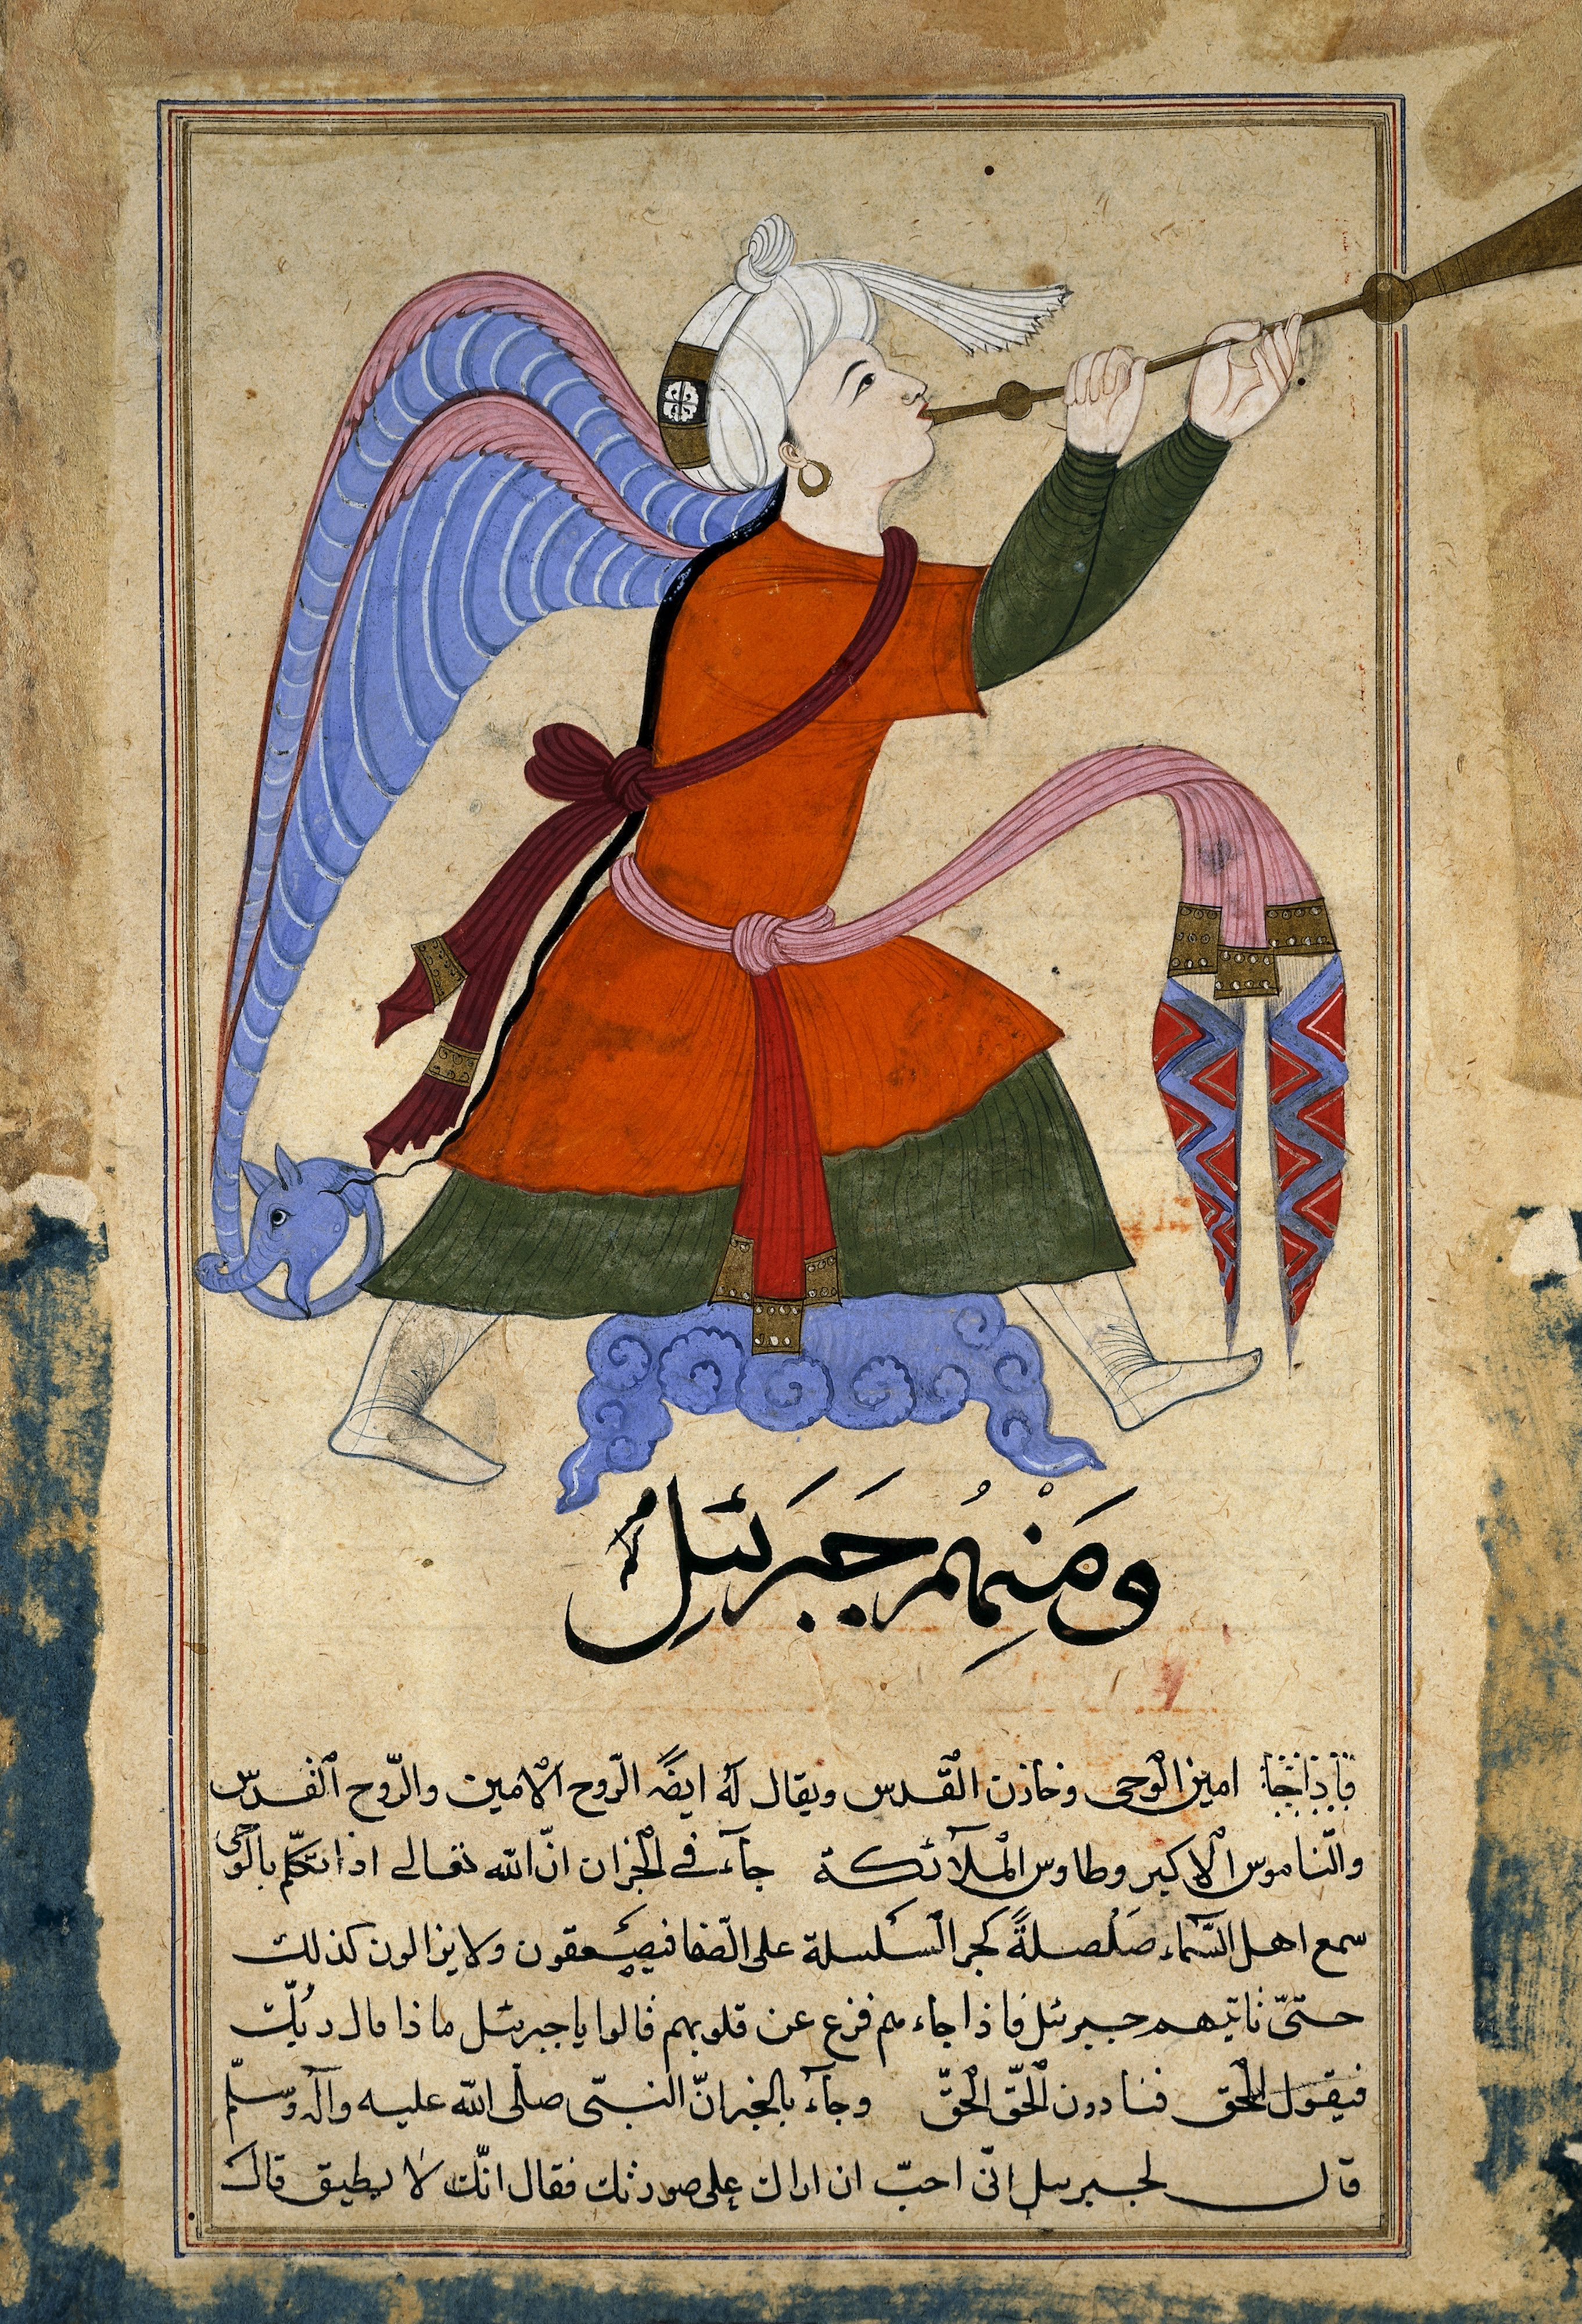 وَمِنْهُم جَبَرئيل
امين الوحى وخازن القدس ويقال له ايضًا الرّوح الامين والرّوح القدس
والنّاموس الاكبر وطاوس الملآئكة جآء فى الخبر ان انّ الله تعالى اذا تكلّم بالوحى
سمع اهل السّمآء صَلْصلةً كجر السّلسلة على الصّفا فيصعقون ولا يزالون كذلك
حتىّ ياتيهم جبرئل فاذا جاءهم فزع عن قلوبهم قالوا يا جبرئل ماذا قال ربّك
فيقول الحق فينادون الحقّ الحقّ وجآء بالخبر انّ النبىّ صلى الله عليه وآله وسلّم
قال لجبرئل انّى احبّ ان اراك على صورتك فقال انّك لا تطيق قال